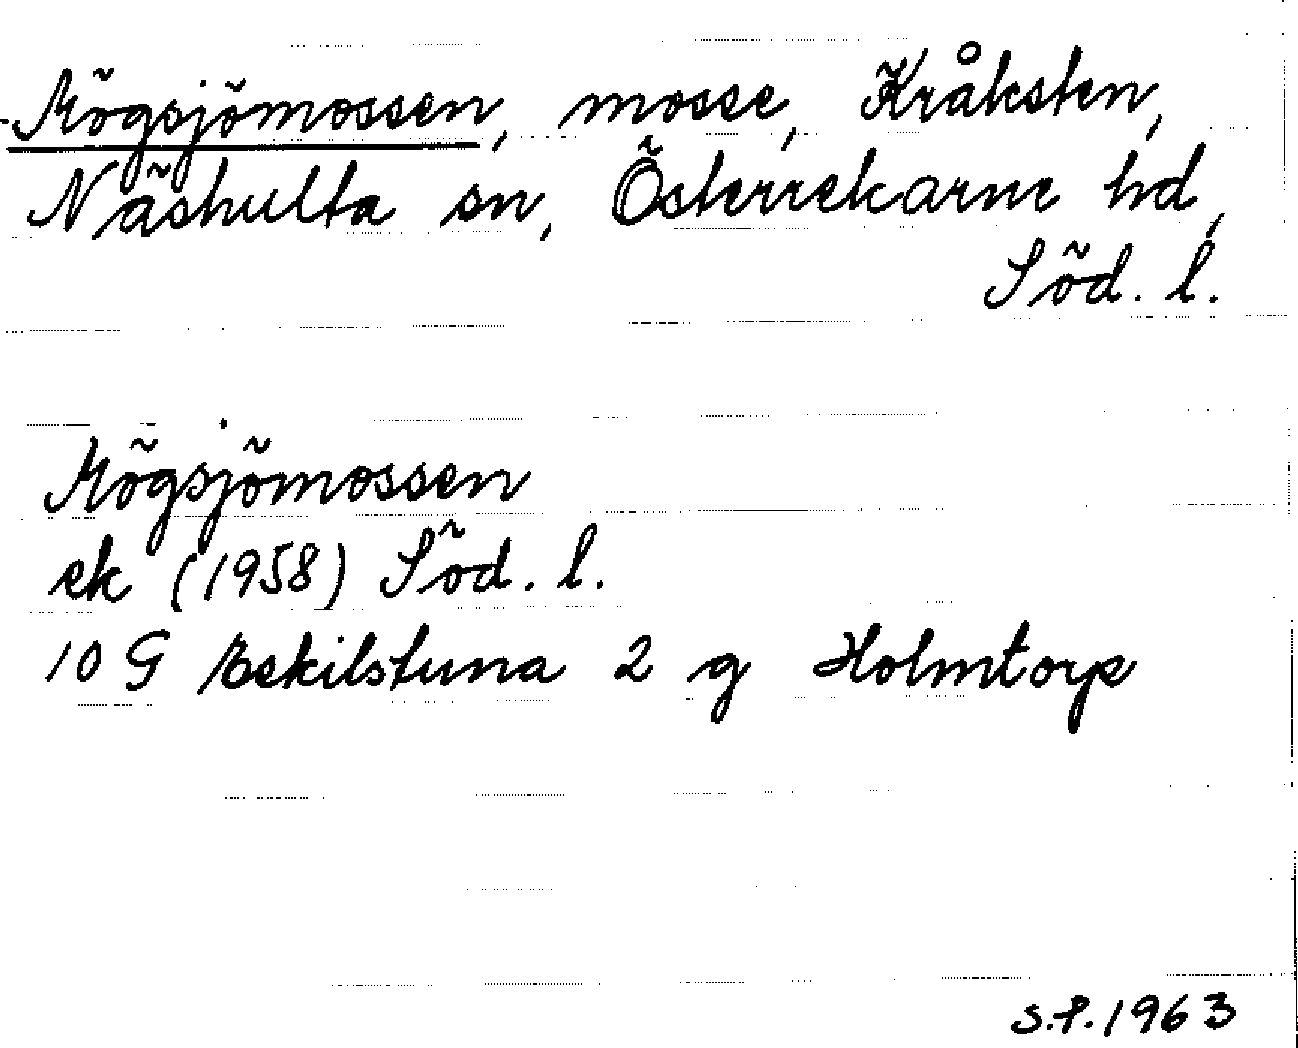 Mögsjömossen, mosse, Kråksten,
Näshulta sn, Österrekarne hd,
Söd. l.
Mögsjömossen
ek (1958) Söd. l.
10 G Eskilstuna 2 g Holmtorp
S.P. 1963